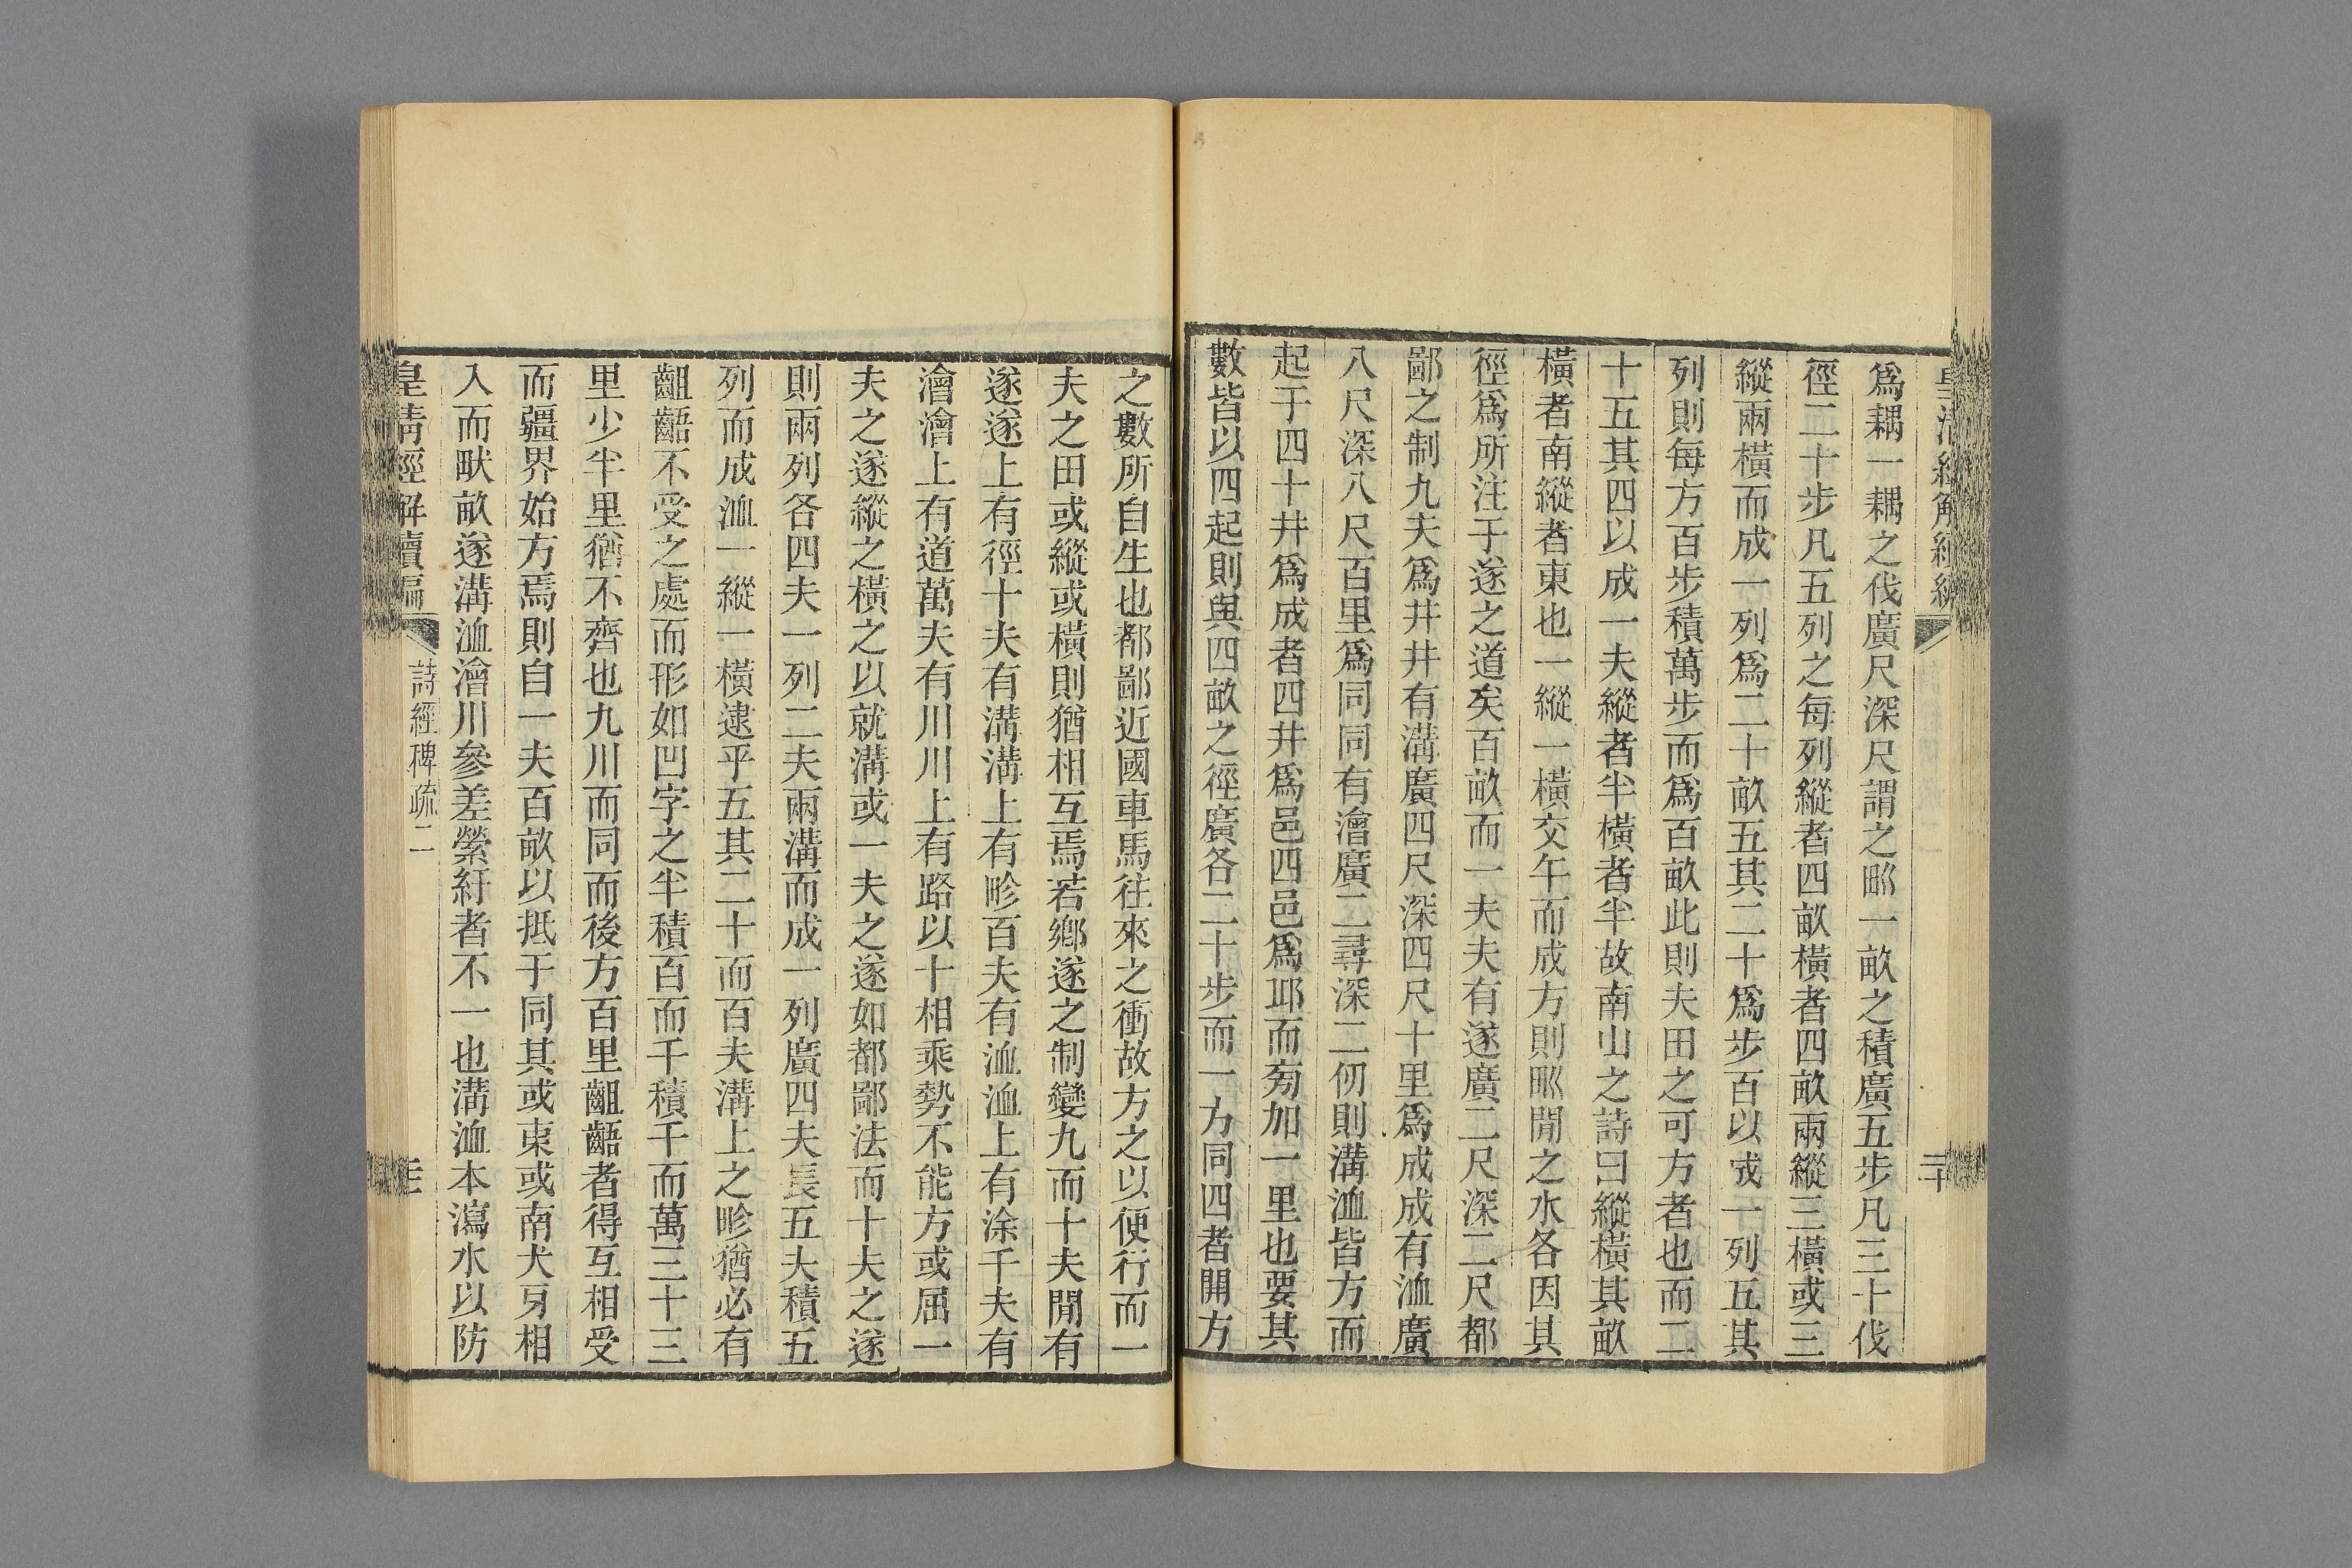 皇清經解續編
三十
爲耦一耦之伐廣尺深尺謂之𤰕一畝之積廣五步凡三十伐
徑二十步凡五列之每列縱者四畝橫者四畝兩縱三橫或三
縱兩橫而成一列爲二十畝五其二十爲步百以成一列五其
列則每方百步積萬步而爲百畝此則夫田之可方者也而二
十五其四以成一夫縱者半橫者半故南山之詩曰縱橫其畝
橫者南縱者東也一縱一橫交午而成方則𤰕閒之水各因其
徑爲所注于遂之道矣百畝而一夫夫有遂廣二尺深二尺都
鄙之制九夫爲井井有溝廣四尺深四尺十里爲成成有洫廣
八尺深八尺百里爲同同有澮廣二尋深二仞則溝洫皆方而
起于四十井爲成者四井爲邑四邑爲邱而菊加一里也要其
數皆以四起則與四畝之徑廣各二十步而一方同四者開方
之數所自生也都鄙近國車馬往來之衝故方之以便行而一
夫之田或縱或橫則猶相互焉若鄉遂之制變九而十夫閒有
遂遂上有徑十夫有溝溝上有畛百夫有洫洫上有涂千夫有
澮澮上有道萬夫有川川上有路以十相乘勢不能方或屈一
夫之遂縱之橫之以就溝或一夫之遂如都鄙法而十夫之遂
則兩列各四夫一列二夫兩溝而成一列廣四夫長五夫積五
列而成洫一縱一橫逮乎五其二十而百夫溝上之畛猶必有
齟齬不受之處而形如凹字之半積百而千積千而萬三十三
里少半里猶不齊也九川而同而後方百里齟齬者得互相受
而疆界始方焉則自一夫百畝以抵于同其或東或南犬牙相
入而畎畝遂溝洫澮川參差縈紆者不一也溝洫本瀉水以防
皇清經解續編
詩經稗疏二